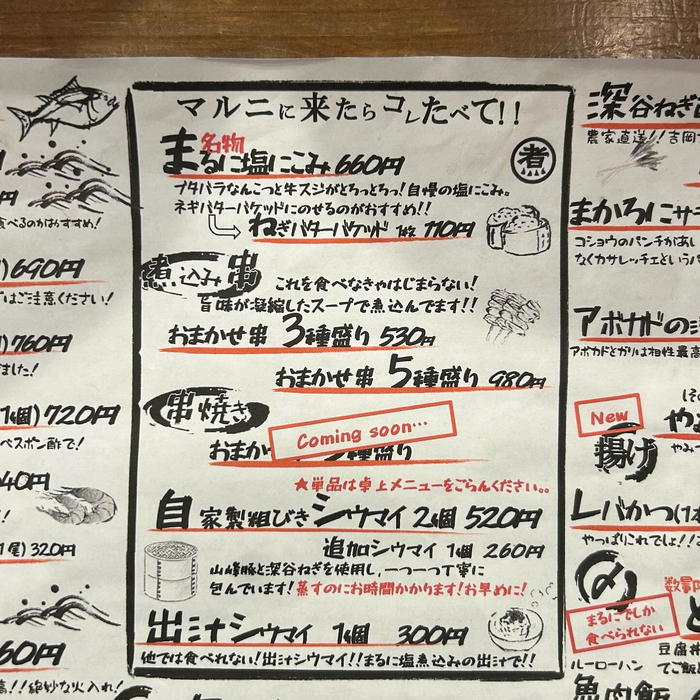 円
食べるのがおすすめ!
)690円
はご注意ください!
)760円
ました!
1個)720円
ベスポン酢で!
40円
1尾)320円
60円
マルニに来たらコレたべて!!
名物
まるに塩にこみ 660円
煮
ブタバラなんこつと牛スジがとろっとろっ!自慢の塩にこみ。
ネギバターバケッドにのせるのがおすすめ!!
ねぎバターバケッド 1枚 110円
煮込み串
これを食べなきゃはじまらない!
旨味が凝縮したスープで煮込んでます!!
おまかせ串 3種盛り 530円
おまかせ串 5種盛り 980円
串焼き
おまか
Coming soon…
種盛り
★単品は卓上メニューをごらんください。
自家製粗びきシウマイ 2個 520円
追加シウマイ 1個 260円
山峰豚と深谷ねぎを使用し、一つ一つ丁寧に
包んでいます!蒸すのにお時間かかります!お早めに!
出汁シウマイ 1個 300円
他では食べれない!出汁シウマイ!!まるに塩煮込みの出汁で!!
深谷ねぎ
農家直送!!吉岡
まかろにサラ
コショウのパンチがあ
なくカサレッチェというパ
アボカドの
アボカドとガリは相性最高
New
揚げ
やみつ
レバかつ(1本
やっぱりこれでは!!
〆
数量限
まるにでしか
食べられない
ルーローハン
豆腐丼
てご飯
魚肉飯